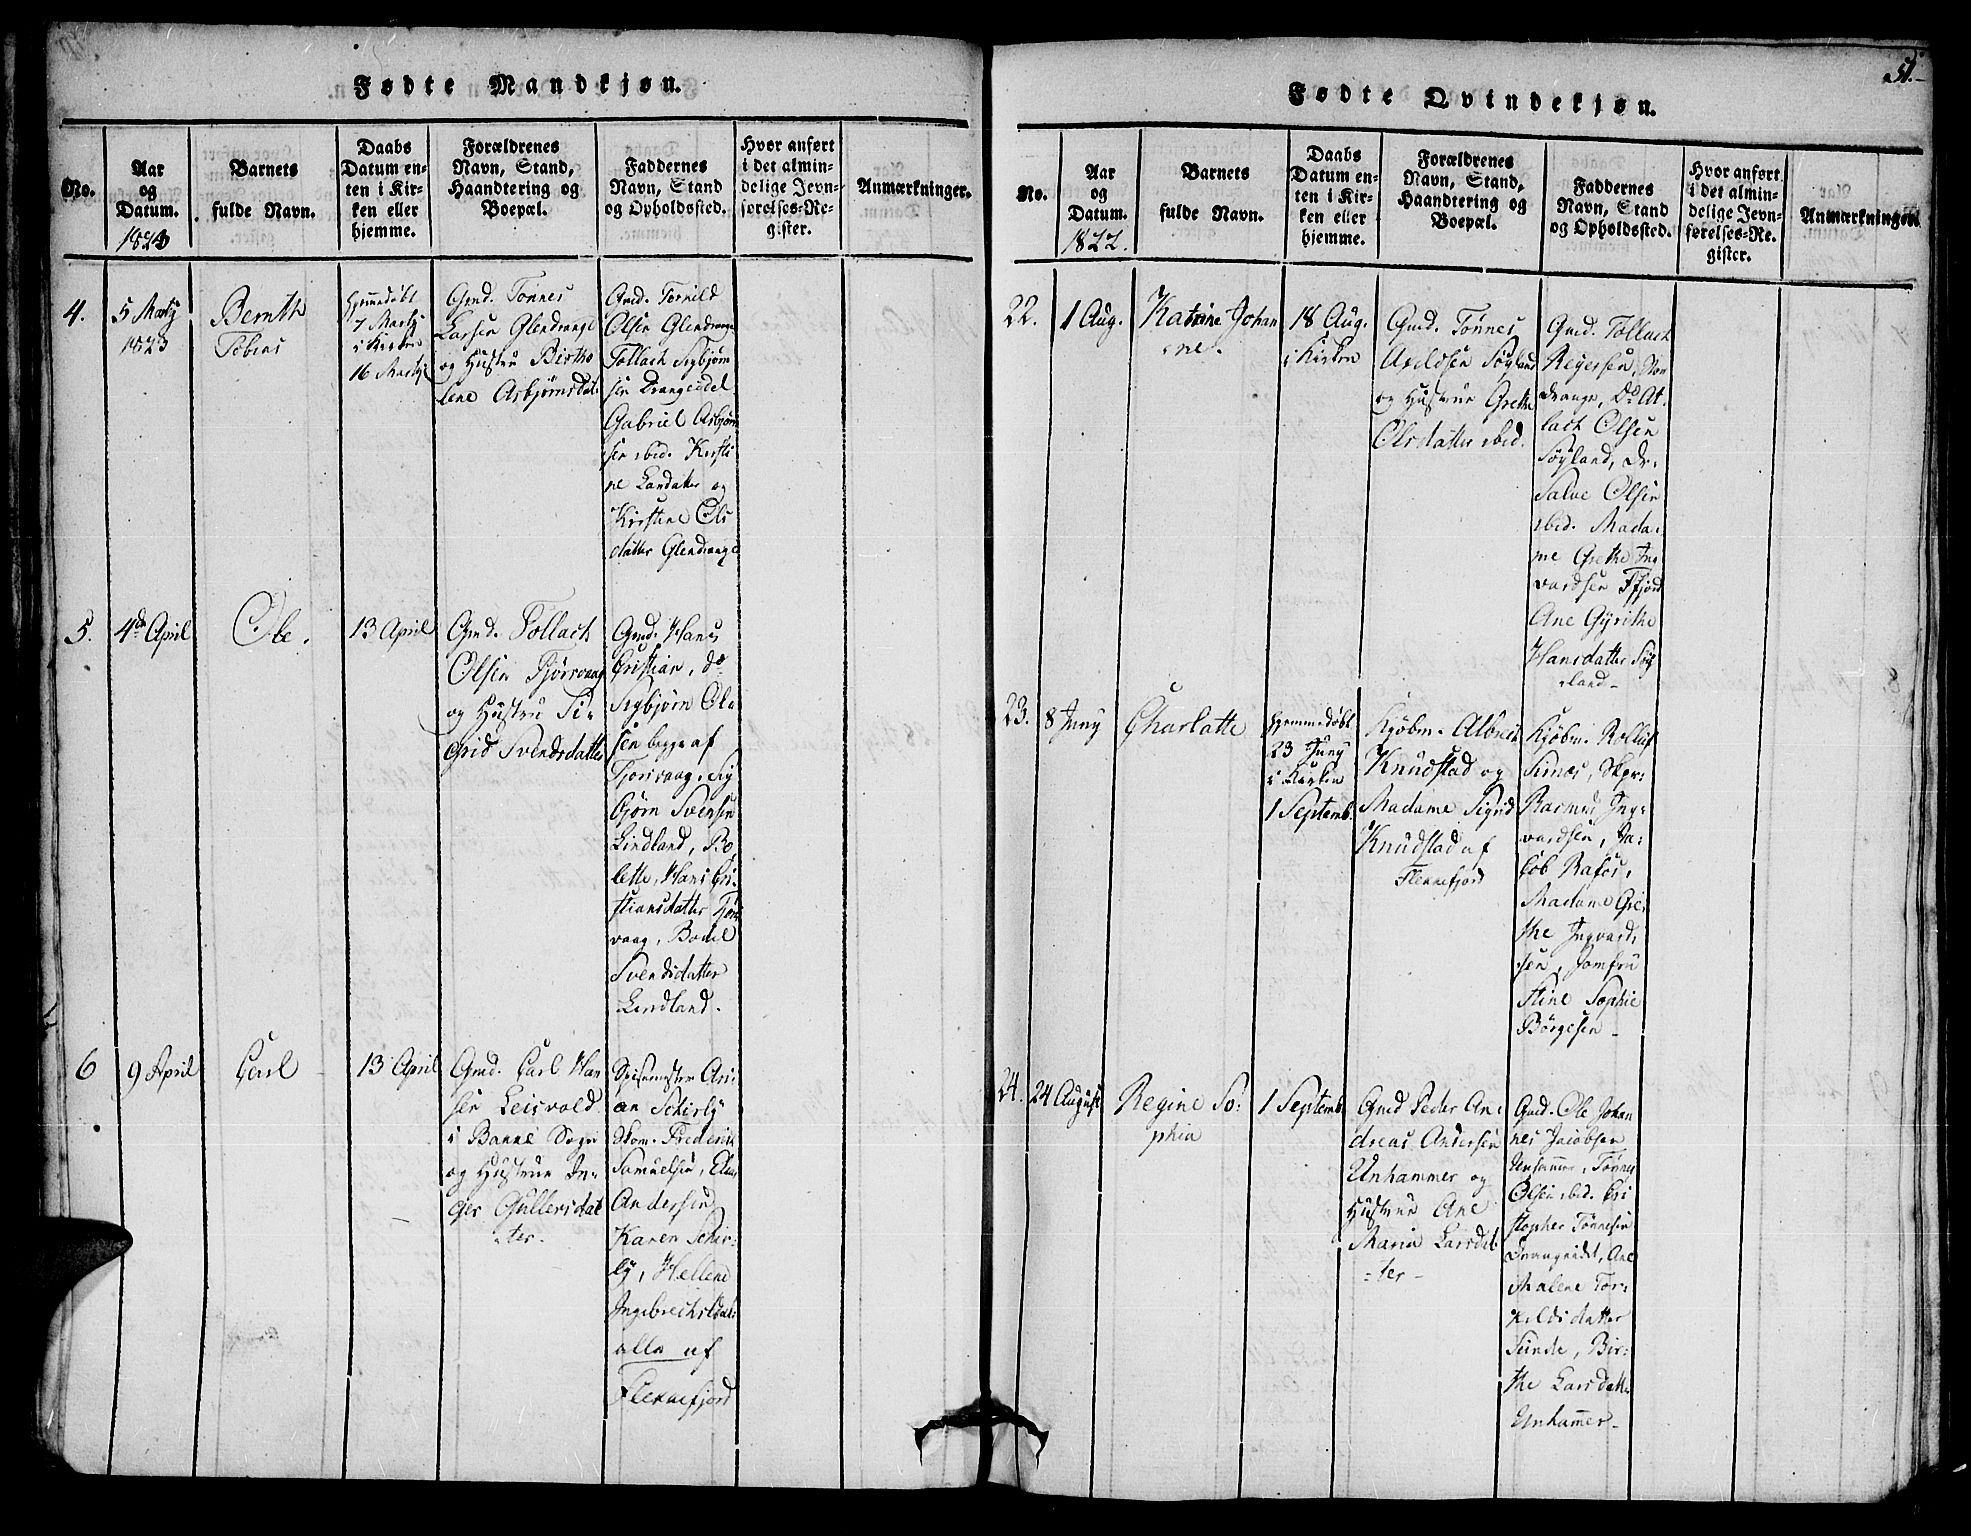 Fødte Mandkjøn.
No.
Aar
og
Datum.
1823
Barnets
fulde Navn.
Daabs
Datum en-
ten i Kir-
ken eller
hjemme.
Forældrenes
Navn, Stand,
Haandtering og
Boepæl.
Faddernes
Navn, Stand
og Opholdssted.
Hvor anført
i det almin-
delige Jevn-
førelses-Re-
gister.
Anmærkninger.
4.
5 Martj
1823
Bernth
Tobias
Hjemmedøbt
7 Martj
i Kirken
16 Martj
Gmd. Tønnes
Larsen Glendrange
og Hustru Birthe
lene Asbjørnsdatt
Gmd. Tornild
Olsen Glendrange
Tollach Sigbjørn
sen Drangeidel
Gabriel Asbjørn
sen ibid. Kirsti
ne Larsdatter og
Kirstine Ols
datter Glendrange
5.
4de April
Ole.
13 April
Gmd. Tollach
Olsen Tjørsvaag
og Hustru Si-
grid Svendsdatter
Gmd. Hans
Cristian, do
Sigbjørn Ole
sen begge af
Tjorsvaag, Sig
bjørn Svensen
Lindland, Bo
lette Hans Cri-
stiansdatter Tjørs
vaag, Bodil
Svendsdatter
Lindland.
6
9 April
Carl
13 April
Gmd. Carl Han
sen Leisvold
i Banne Sogn
og Hustrue In-
ger Gullersdat
ter.
Spisemester Ari-
an Schirly
Skom. Frederik
Samuelsen, Elen
Andersen
Karen Schir-
ly, Hellene
Ingebrechtsdat:
alle af
Flekkefjord
Fødte Qvindekjøn.
51.
No.
Aar
og
Datum.
1822.
Barnets
fulde Navn.
Daabs
Datum en-
ten i Kir-
ken eller
hjemme.
Forældrenes
Navn, Stand,
Haandtering og
Boepæl.
Faddernes
Navn, Stand
og Opholdssted.
Hvor anført
i det almin-
delige Jevn-
førelses-Re-
gister.
Anmærkninger.
22.
1 Aug.
Katrine Johan
ne.
18 Aug.
i Kirken
Gmd. Tønnes
Axelsen Søyland
og Hustrue Grethe
Olsdatter ibid.
Gmd. Tollach
Regersen, Non
drange, Do At-
lach Olsen
Søyland, Dr.
Salve Olsen
ibid. Mada-
me Grethe Ing
vardsen Ffjord
Ane Gyrithe
Hansdatter Søy
land-
23.
8 Juny
Charlatte
Hjemmedøbt
23 Juny
i Kirken
1 Septemb.
Kjøbm. Albrit
Knudstad og
Madame Sigrid
Knudstad af
Flekkefjord
Kjøbm. Rolluf
Sirnæs, Skpr.
Rasmus Ing-
vardsen, Ja-
kob Rafos,
Madame Gre-
the Ingvard-
sen, Jomfru
Stine Sophie
Børgesen-
24.
24 August
Regine So-
phia
1 Septemb.
Gmd Peder An-
dreas Andersen
Unhammer og
Hustrue Ane
Maria Larsdat
ter-
Gmd. Ole Johan
nes Jacobsen
Unhammer, Tønnes
Olsen ibid. Cri
stopher Tønnesen
Drangeidel, Ane
Malene Tor-
kildsdatter
Sünde, Bir-
the Larsdatter
Unhamer-